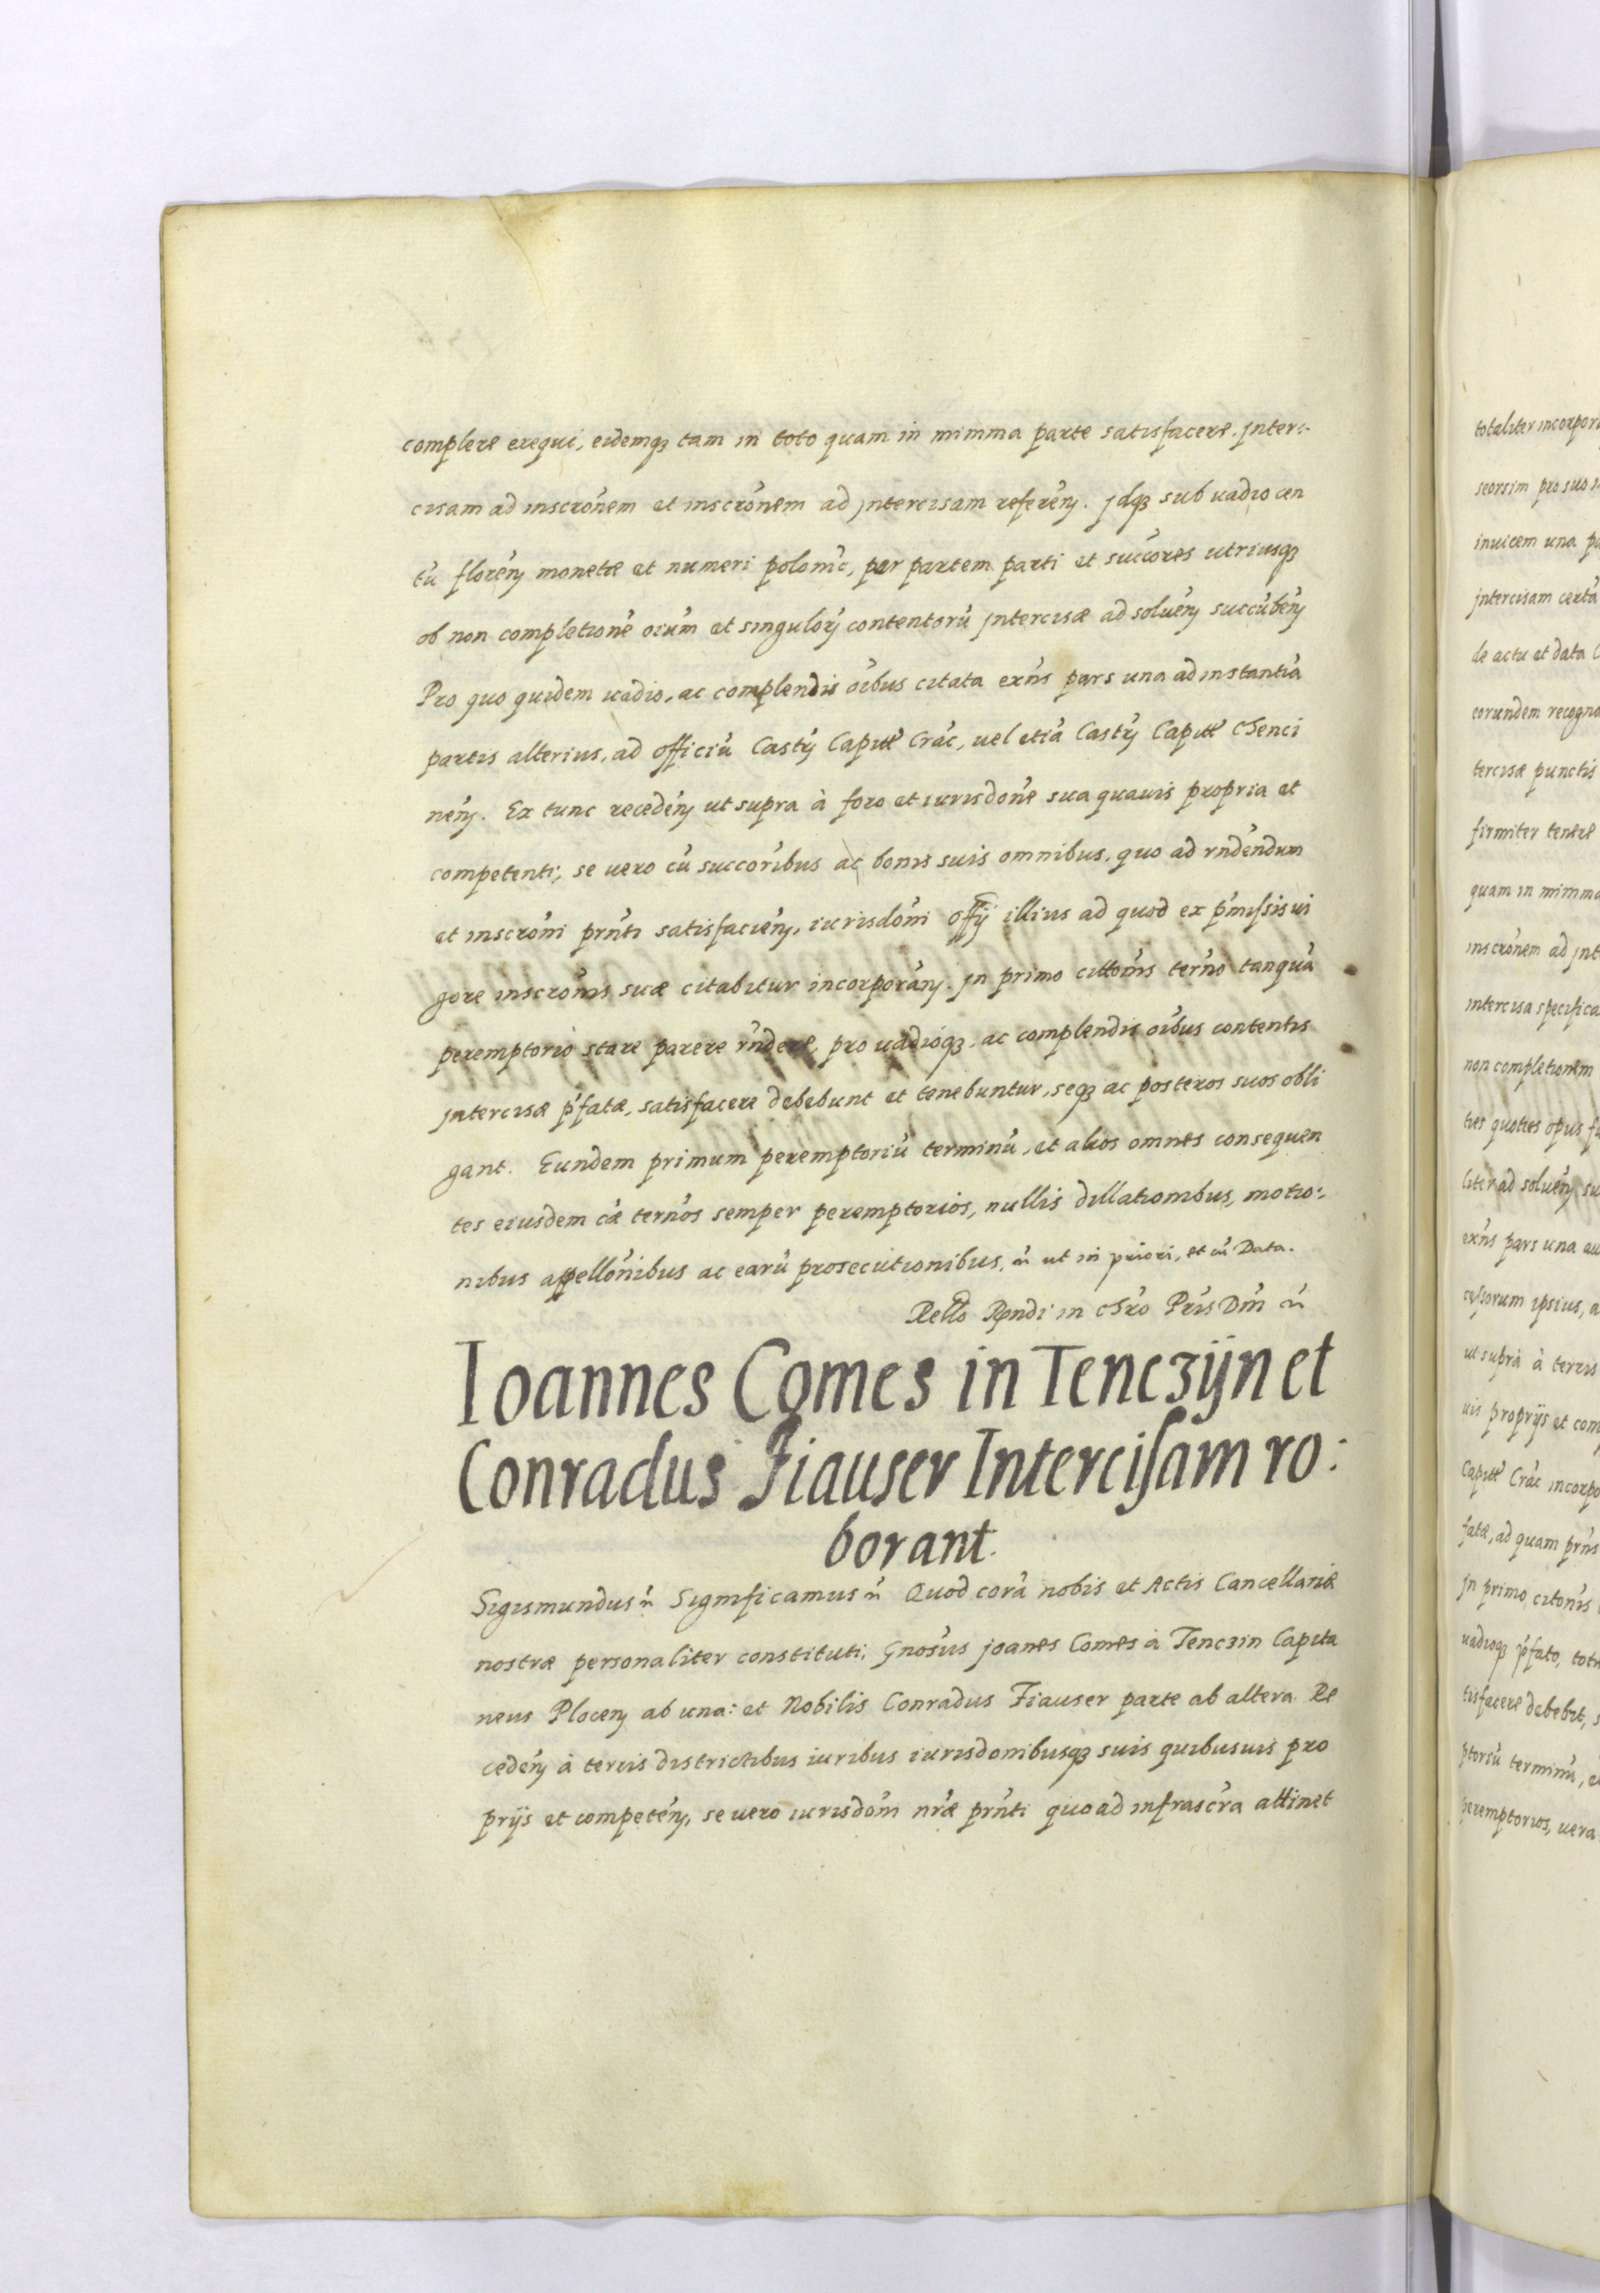 complere exequi, eidemq3 tam in toto quam in minima parte satisfacere. jnter:-
cisam ad inscrōnem et inscrōnem ad jntercisam referēn. jdq3 sub uadio cen
tū florēn monetæ et numeri poloni̇c, per partem parti et succōres utriusq3
ob non completionē oīum et singulorꝫ contentorū jntercisæ ad soluēn succūbēn
Pro quo quidem uadio, ac complendis oībus citata exn̄s pars una ad instantiā
partis alterius, ad officiū Castrꝫ Capitt Crac, uel etiā Castrꝫ Capitt Chenci
nēn. Ex tunc recedēn ut supra à foro et iurisdōne sua quauis propria et
competenti, se uero cū succorībus ac bonis suis omnibus, quo ad rn̄dendum
et inscrōni prn̄ti satisfaciēn, iurisdōni offij illius ad quod ex p̄missis ui
gore inscrōnis suæ citabitur incorporān. jn primo cittōnis terno tanquā
peremptorio stare parere rn̄dere, pro uadioq3, ac complendis oībus contentis
jntercisæ p̄fatæ, satisfacere debebunt et tenebuntur, seq3 ac posteros suos obli
gant. Eundem primum peremptoriū terminū, et alios omnes consequen
tes eiusdem cæ ternos semper peremptorios, nullis dillationibus, motio:-
nibus appellōnibus ac earū prosecutionibus, r̄ ut in priori, et r̄ Data.
Rello Rn̄di in chro Pris Dn̄i r̄
Ioannes Comes in Tenczÿn et
Conradus Fiauser Intercisam ro:
borant.
Sigismundus r̄ Significamus r̄ Quod corā nobis et Actis Cancellariæ
nostræ personaliter constituti; Gnosus joanes Comes à Tenczin Capita
neus Plocen ab una: et Nobilis Conradus Fiauser parte ab altera Re
cedēn à terris districtibus iuribus iurisdonibusq3 suis quibusuis pro
prijs et competēn, se uero iurisdōni nr̄æ prn̄ti quo ad infrascr̄a attinet
totaliter incorpor
seorsim pro suo
inuicem una
jntercisam certā
de actu et data
eorundem recogno
tercisæ punctis
firmiter tenere
quam in minima
inscrōnem ad jnt
intercisa specifica
non completionem
ties quoties opus
liter ad soluēn su
exn̄s pars una
cessorum ipsius, a
ut supra à terris
uis proprijs et com
Capitt Crac incorpo
fatæ, ad quam prn̄s
jn primo citōnis
uadioq3 p̄fato, tot
tisfacere debebit,
ptoriū terminū,
peremptorios, uera